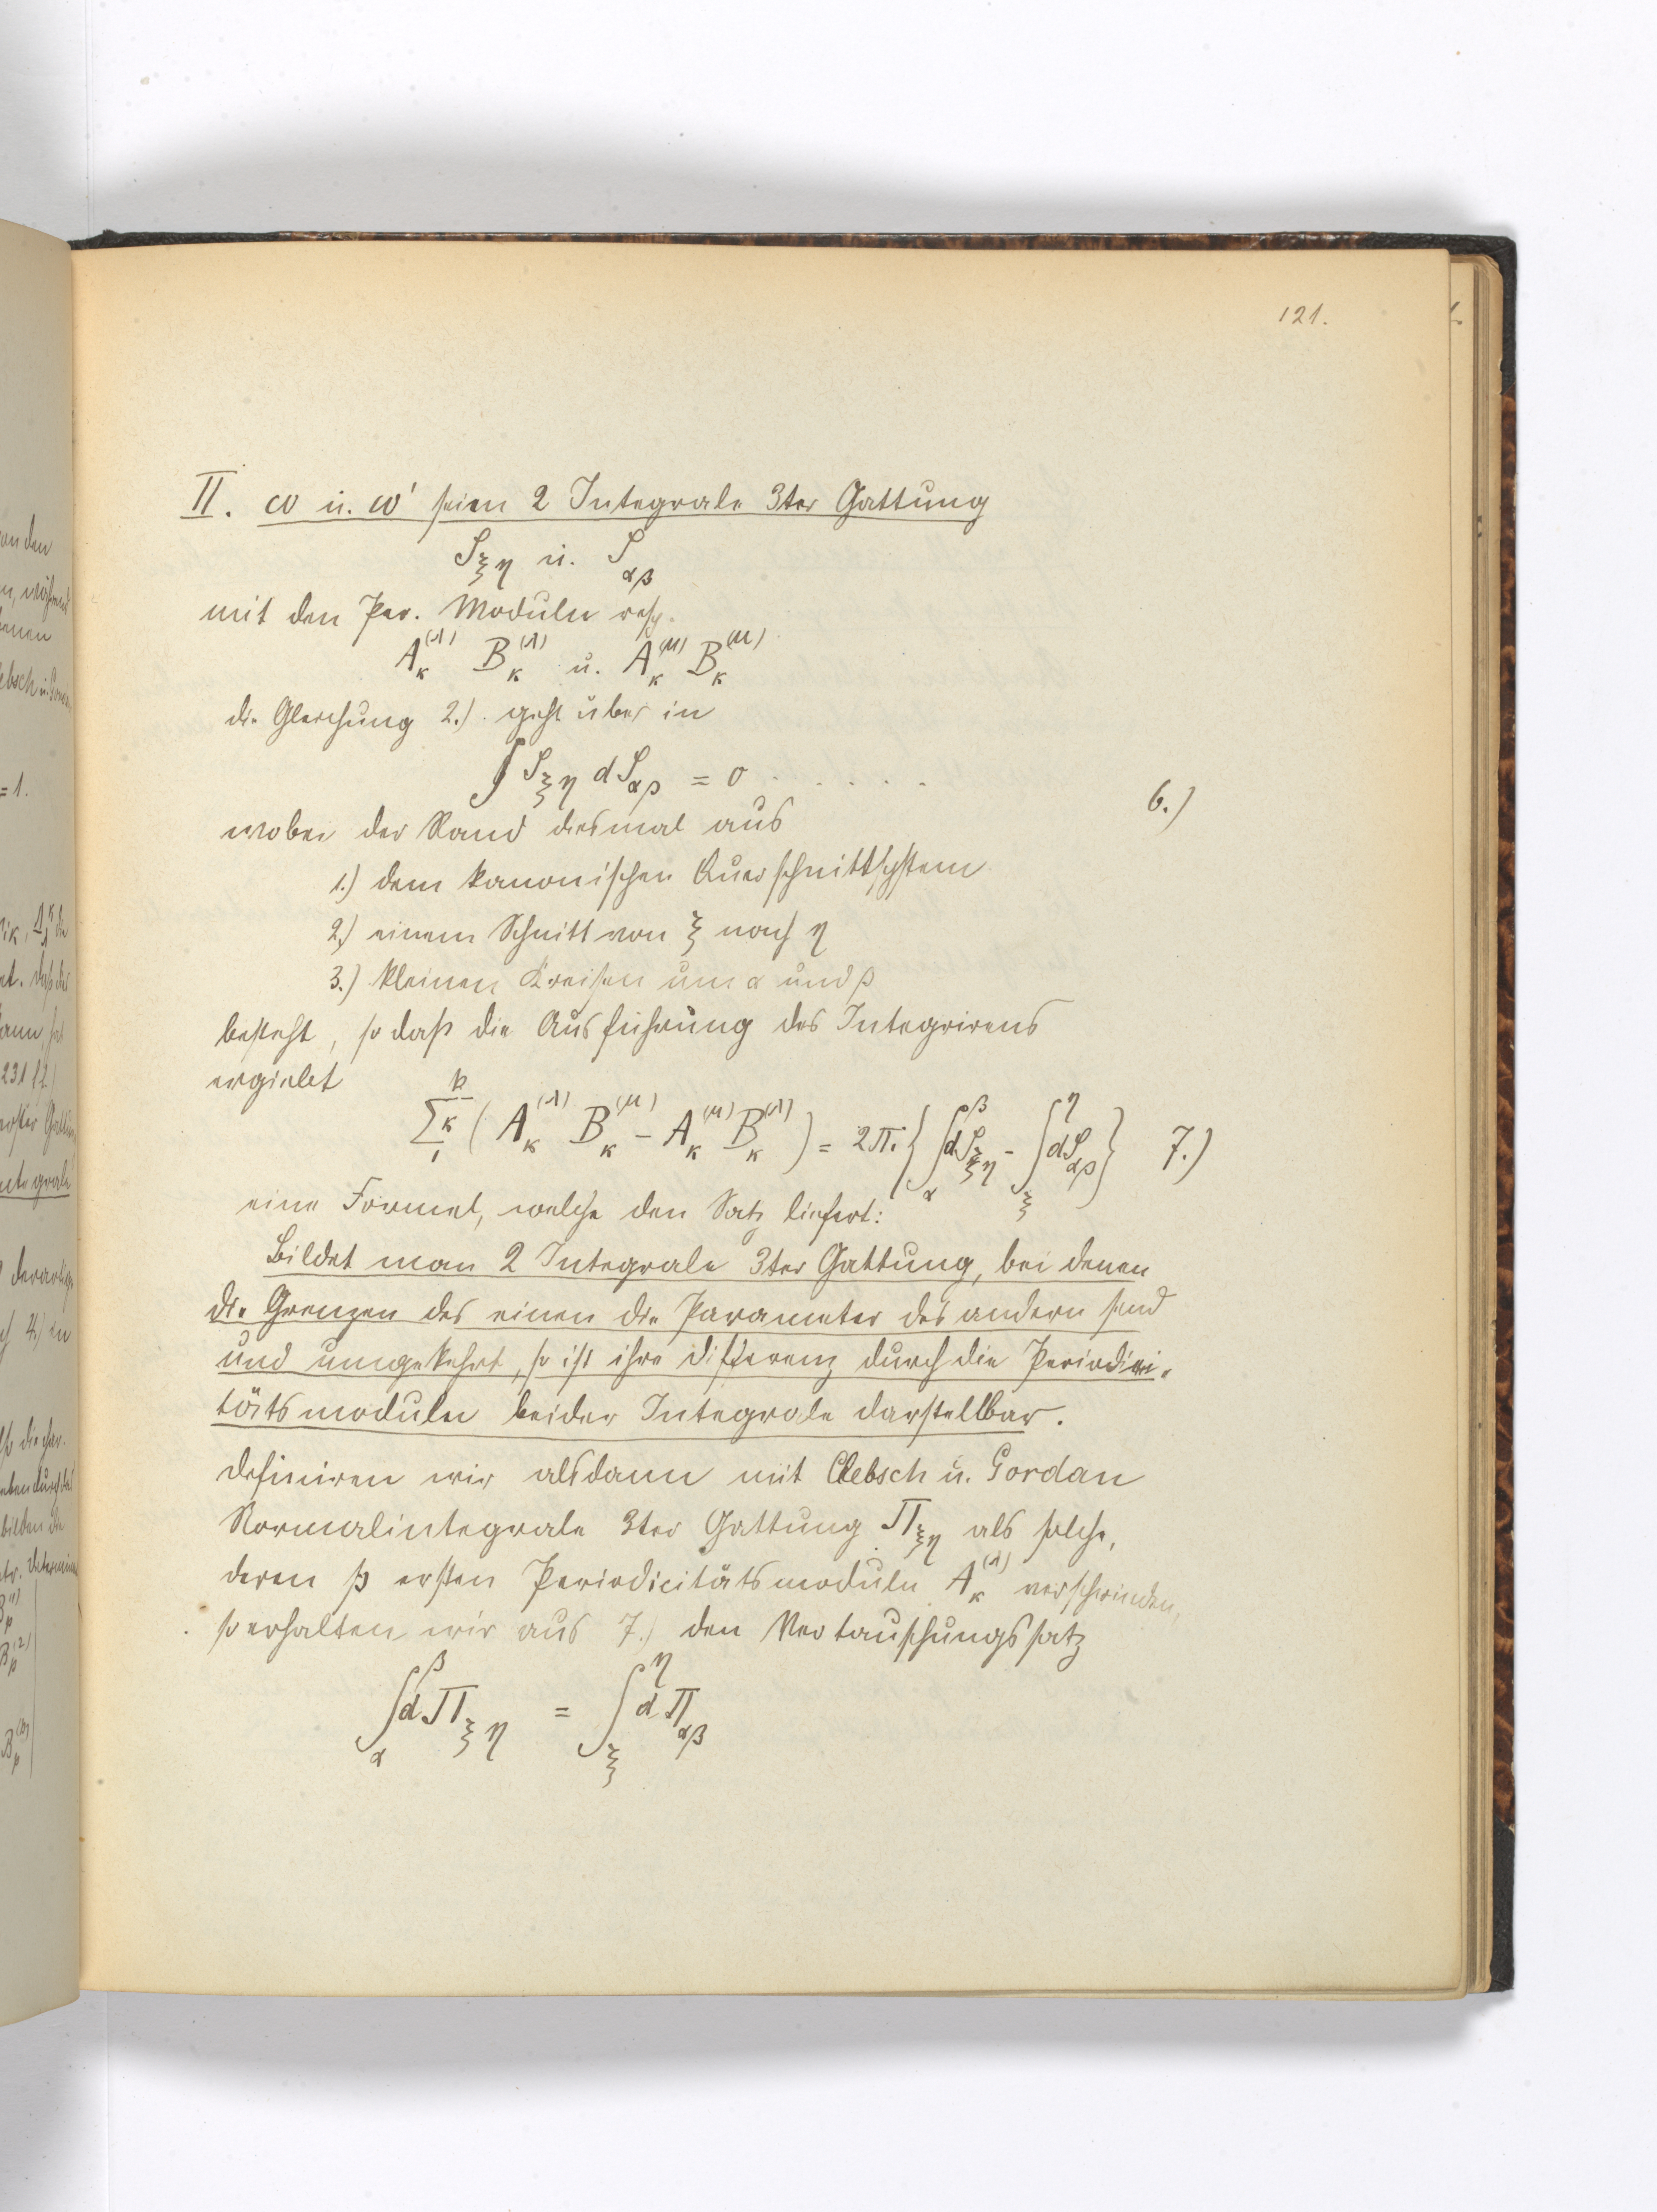 121.
II. ω u. ω' seien 2 Integrale 3ter Gattung
S_{ξη} u. S_{αβ}
mit den Per. Moduln resp.
A_κ^{(λ)} B_κ^{(λ)} u. A_κ^{(μ)} B_κ^{(μ)}
die Gleichung 2.) geht über in
∫ S_{ξη} dS_{αβ} = 0 . . . . . 6.)
wobei der Rand diesmal aus
1.) dem kanonischen Querschnittsystem
2.) einem Schnitt von ξ nach η
3.) kleinen Kreisen um α und β
besteht, so daß die Ausführung des Integrirens
ergiebt
∑_1^p κ (A_κ^{(λ)} B_κ^{(μ)} − A_κ^{(μ)} B_κ^{(λ)}) = 2πi {∫_α^β dS_{ξη} − ∫_ξ^η dS_{αβ}} 7.)
eine Formel, welche den Satz liefert:
Bildet man 2 Integrale 3ter Gattung, bei denen
die Grenzen des einen die Parameter des andern sind
und umgekehrt, so ist ihre Differenz durch die Periodici-
tätsmoduln beider Integrale darstellbar.
Definiren wir alsdann mit Clebsch u. Gordan
Normalintegrale 3ter Gattung Π_{ξη} als solche,
deren p ersten Periodicitätsmoduln A_κ^{(λ)} verschwinden,
so erhalten wir aus 7.) den Vertauschungssatz
∫_α^β dΠ_{ξη} = ∫_ξ^η dΠ_{αβ}